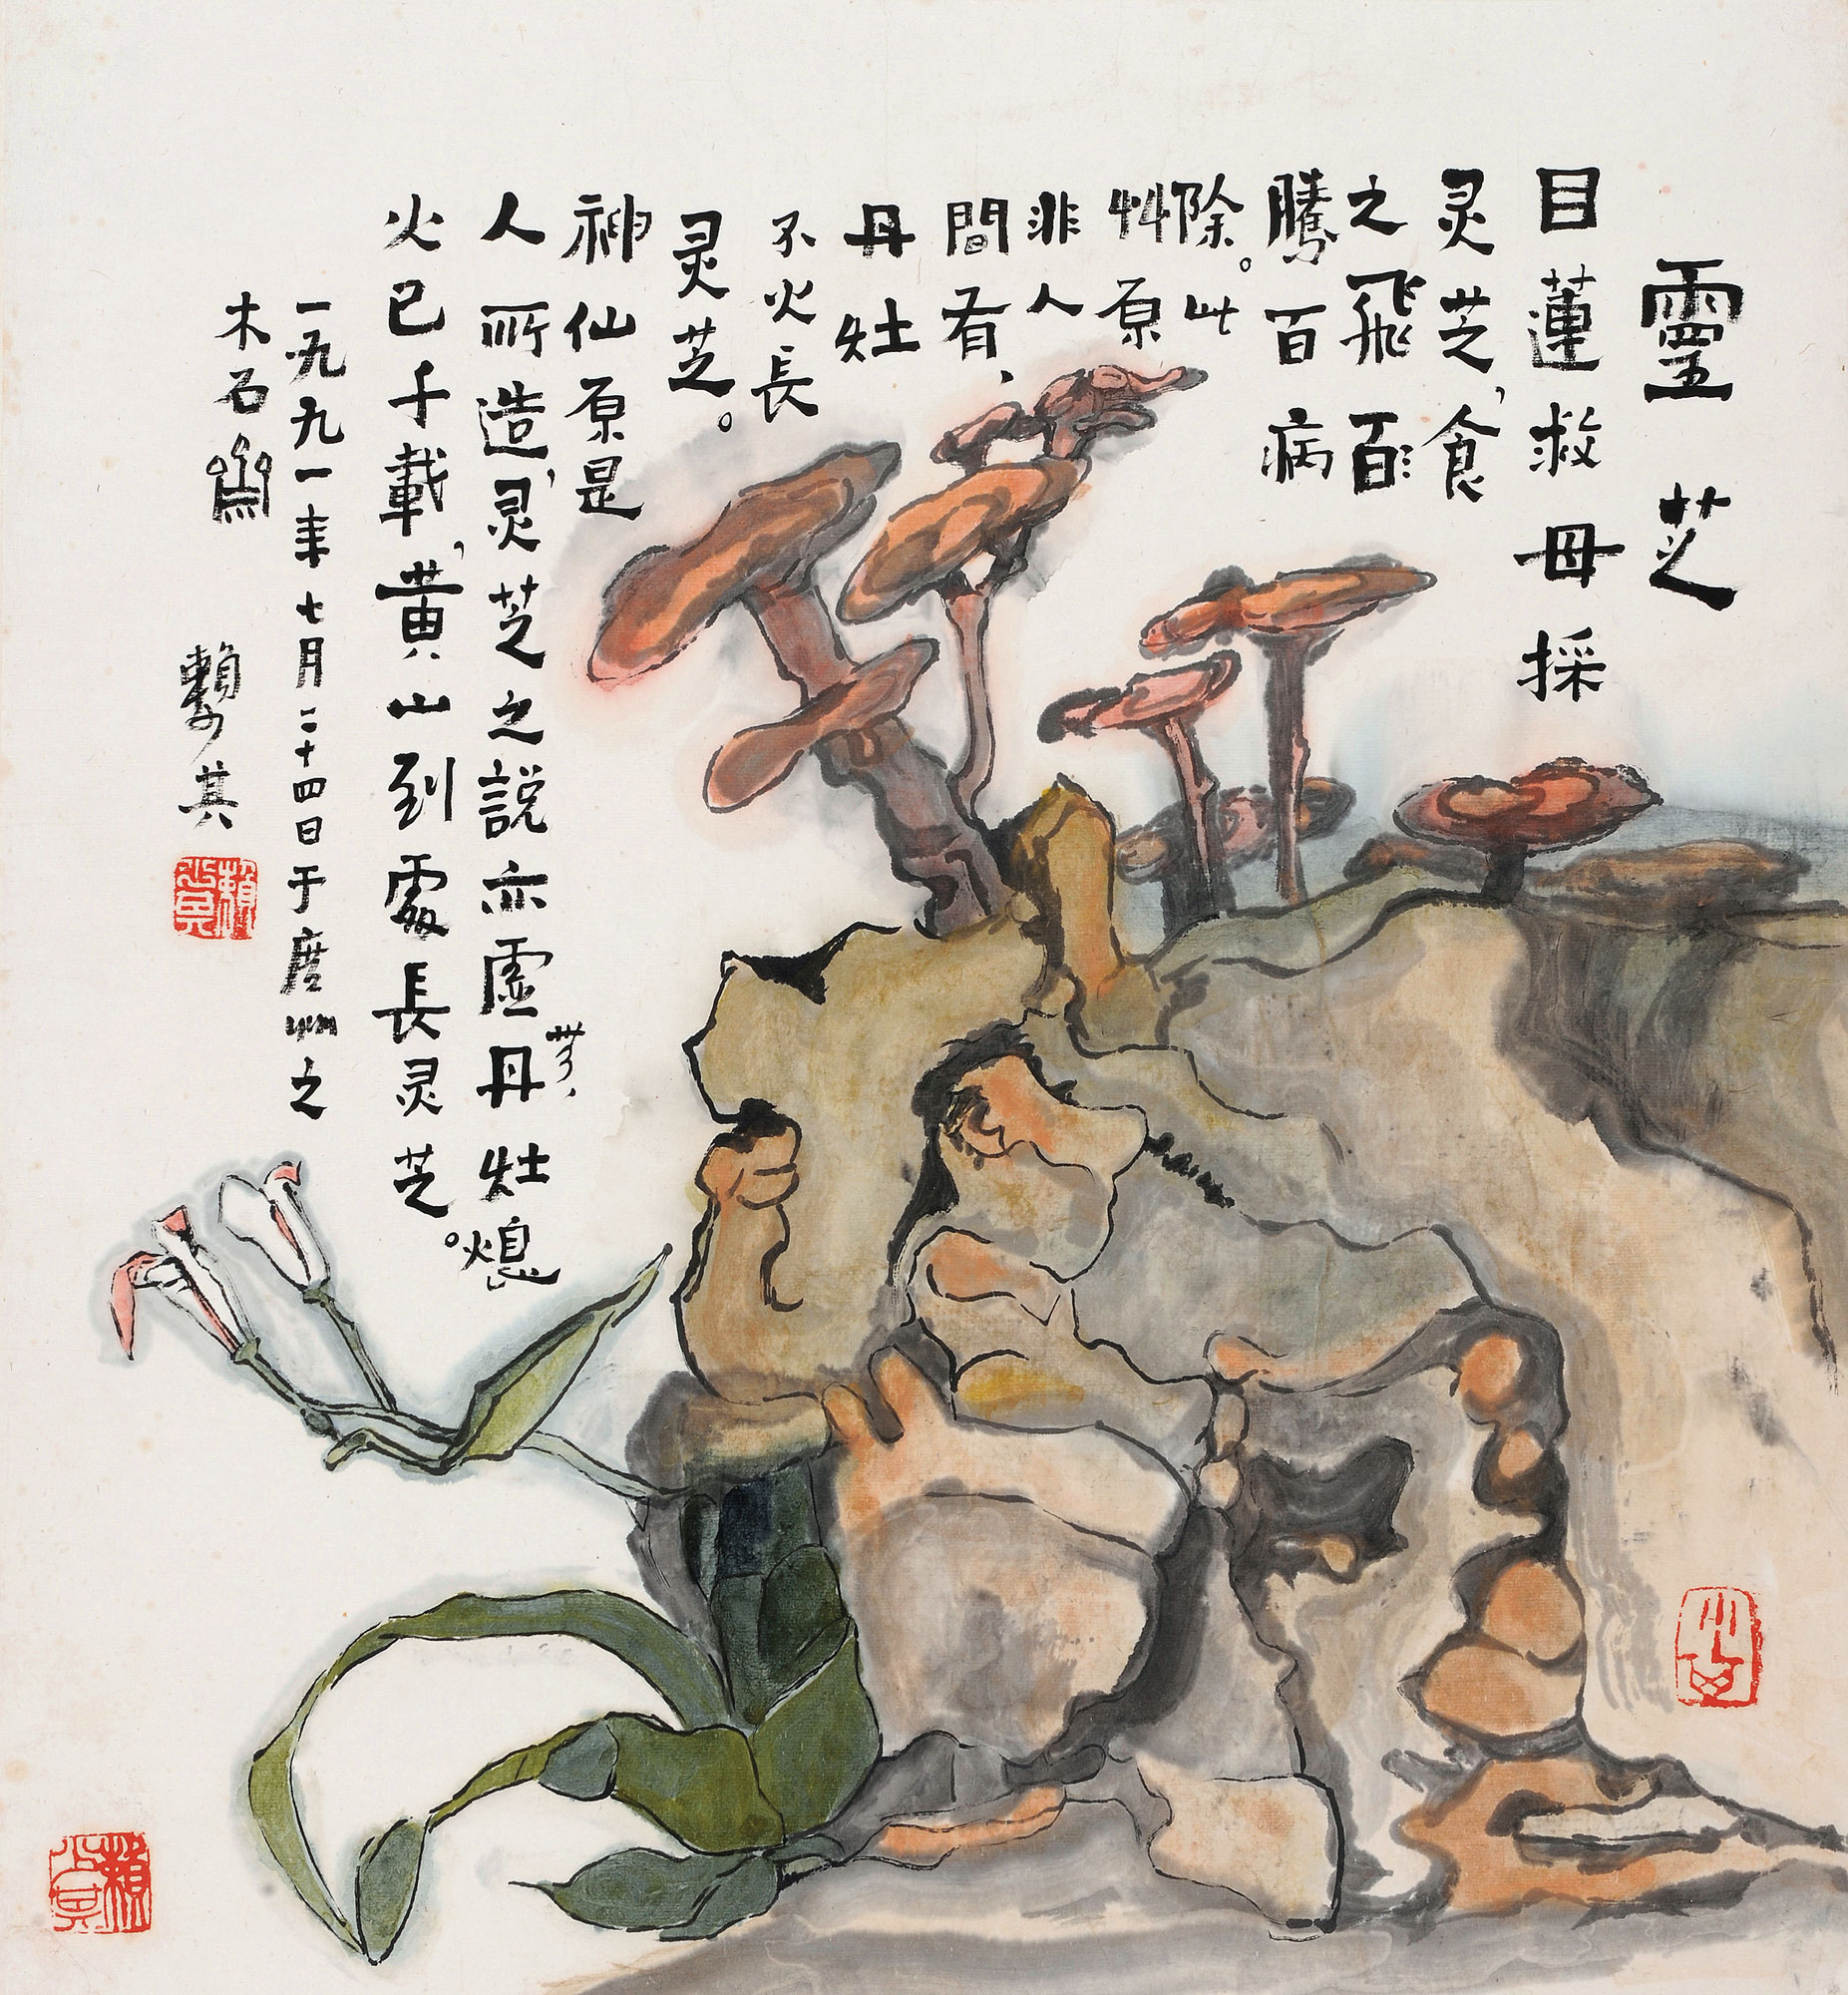 靈芝
目蓮救母採
灵芝，食
之飛
騰百病
除。此
艸原
非人
間有，
丹灶
不火長
灵芝。
神仙原是
人所造，灵芝之説亦虛無，丹灶熄
火已千載，黄山到處長灵芝。
一九九一年七月二十四日于廣州之
木石齋
賴少其